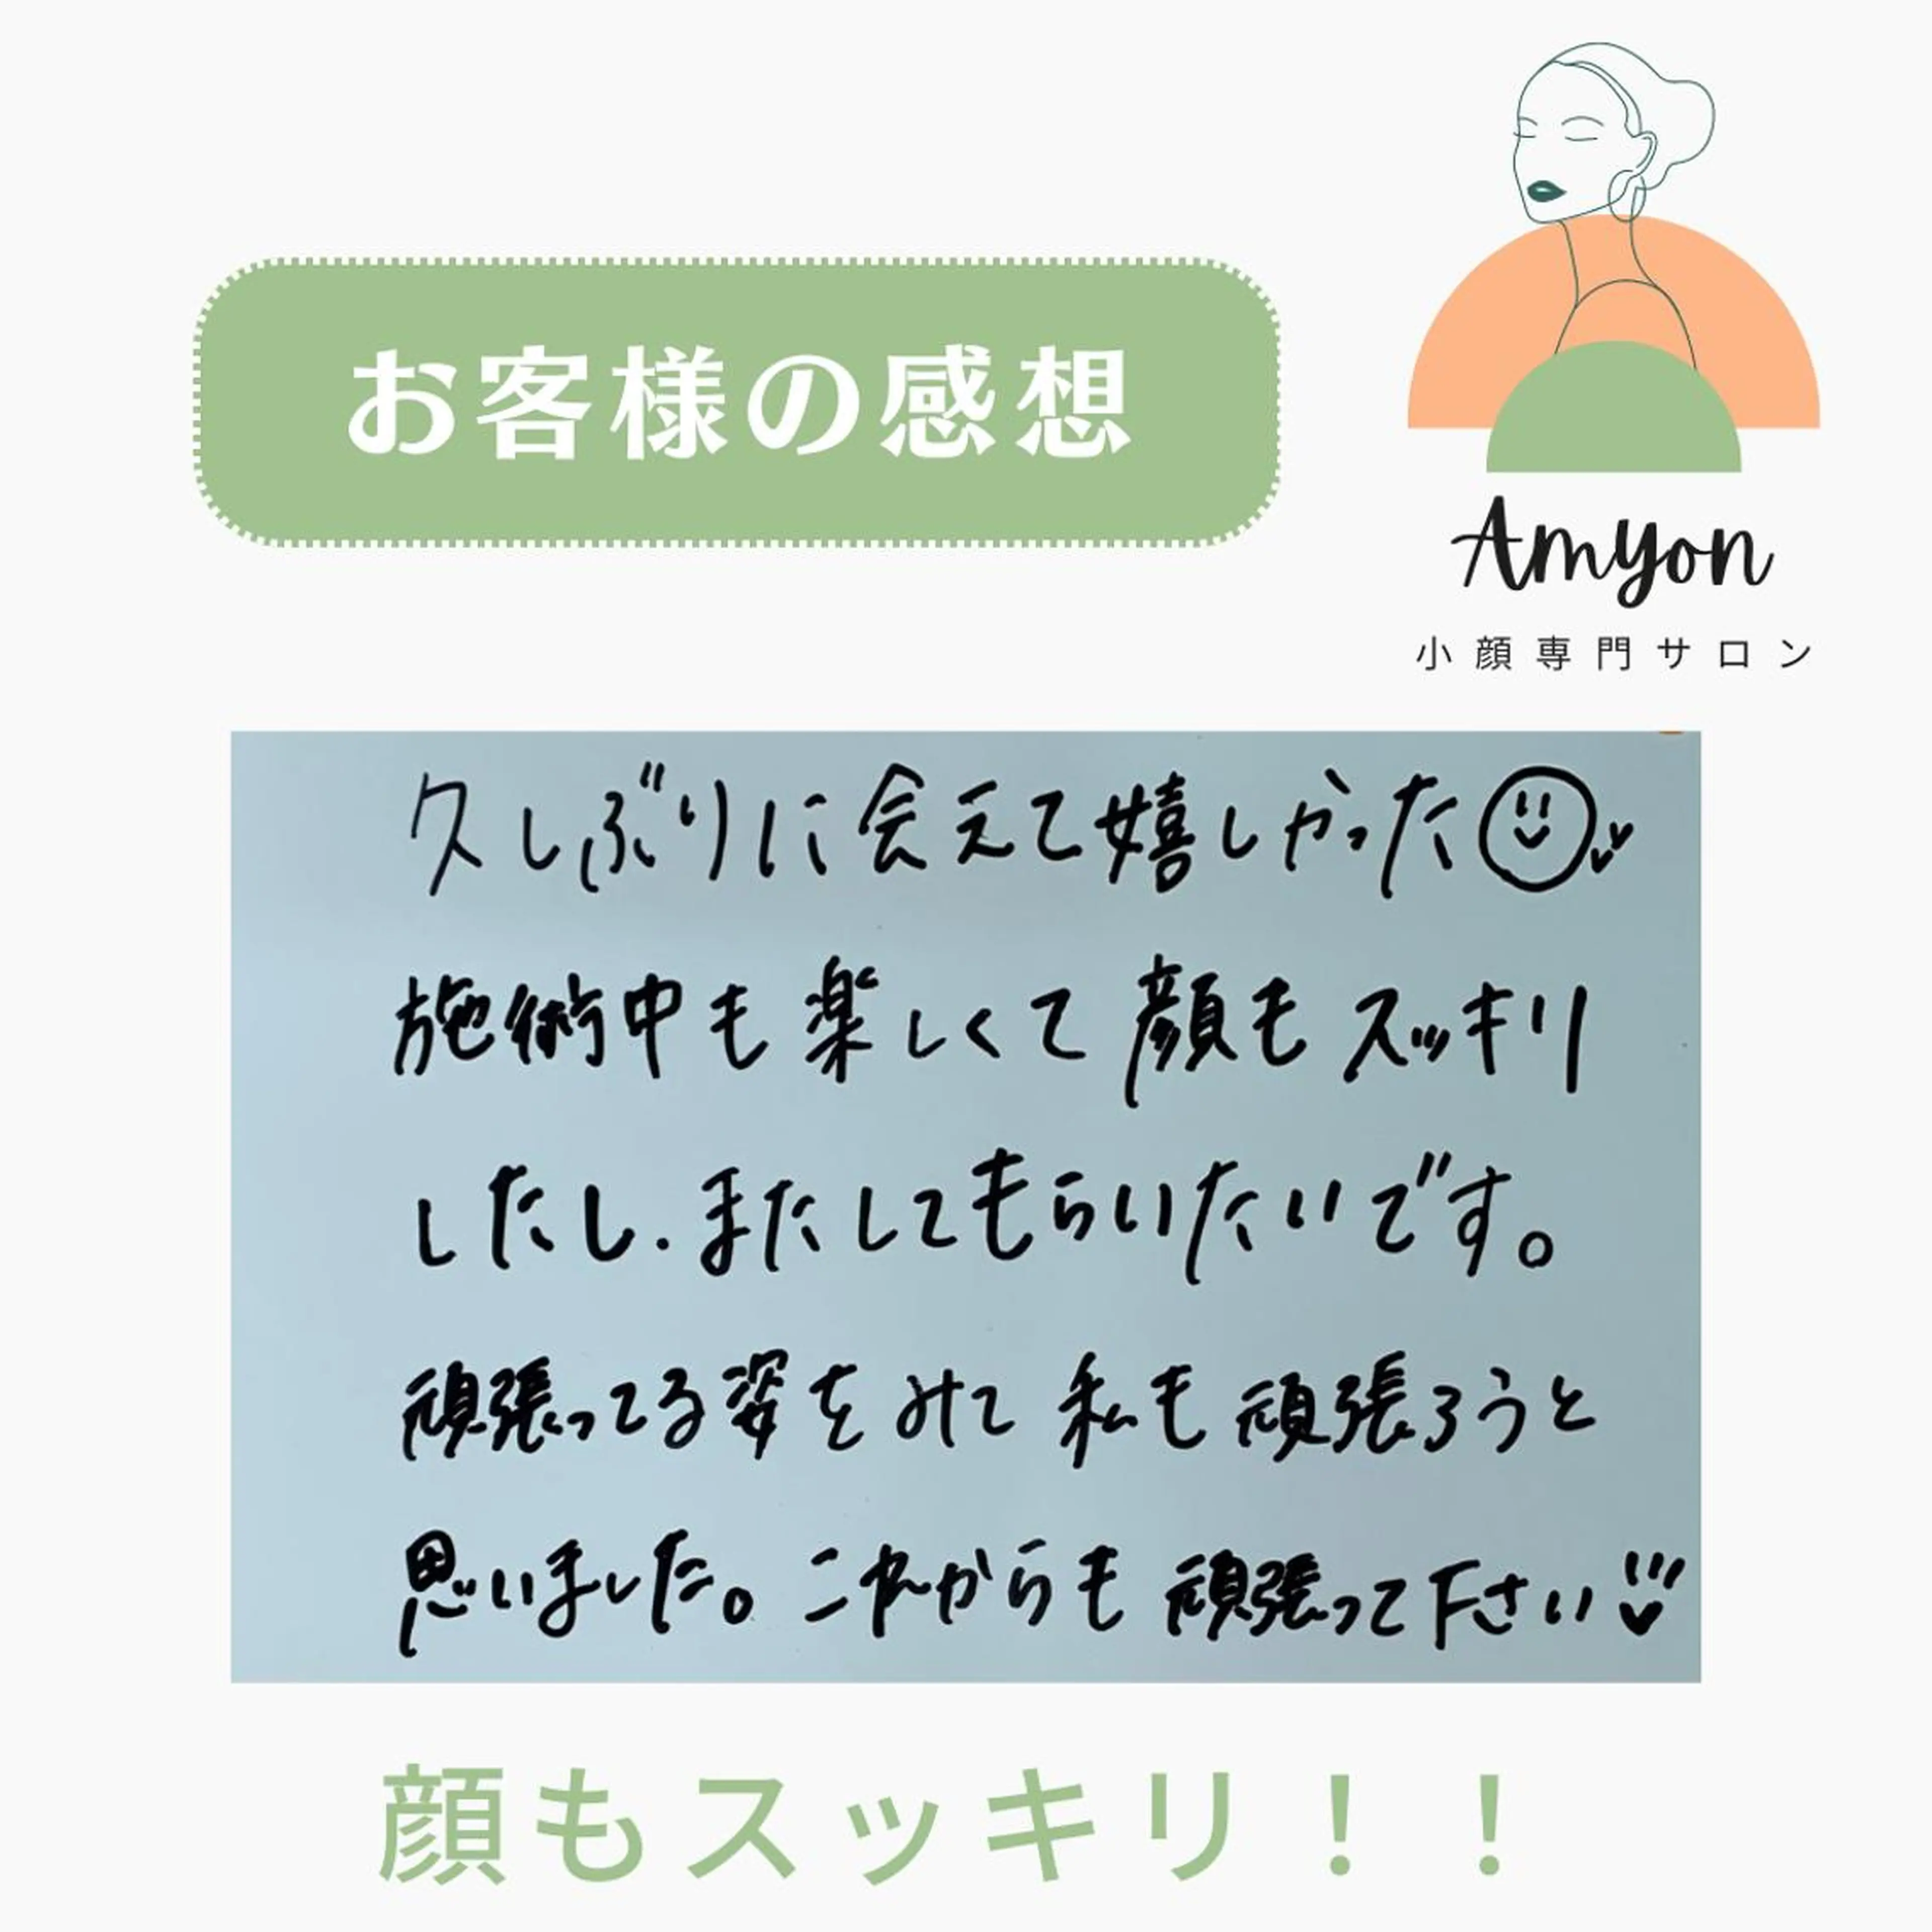 お客様の感想
Amyon
小顔専門サロン
久しぶりに会えて嬉しかった
施術中も楽しくて顔もスッキリ
したし.またしてもらいたいです。
頑張ってる姿をみて私も頑張ろうと
思いました。これからも頑張って下さい
顔もスッキリ！！